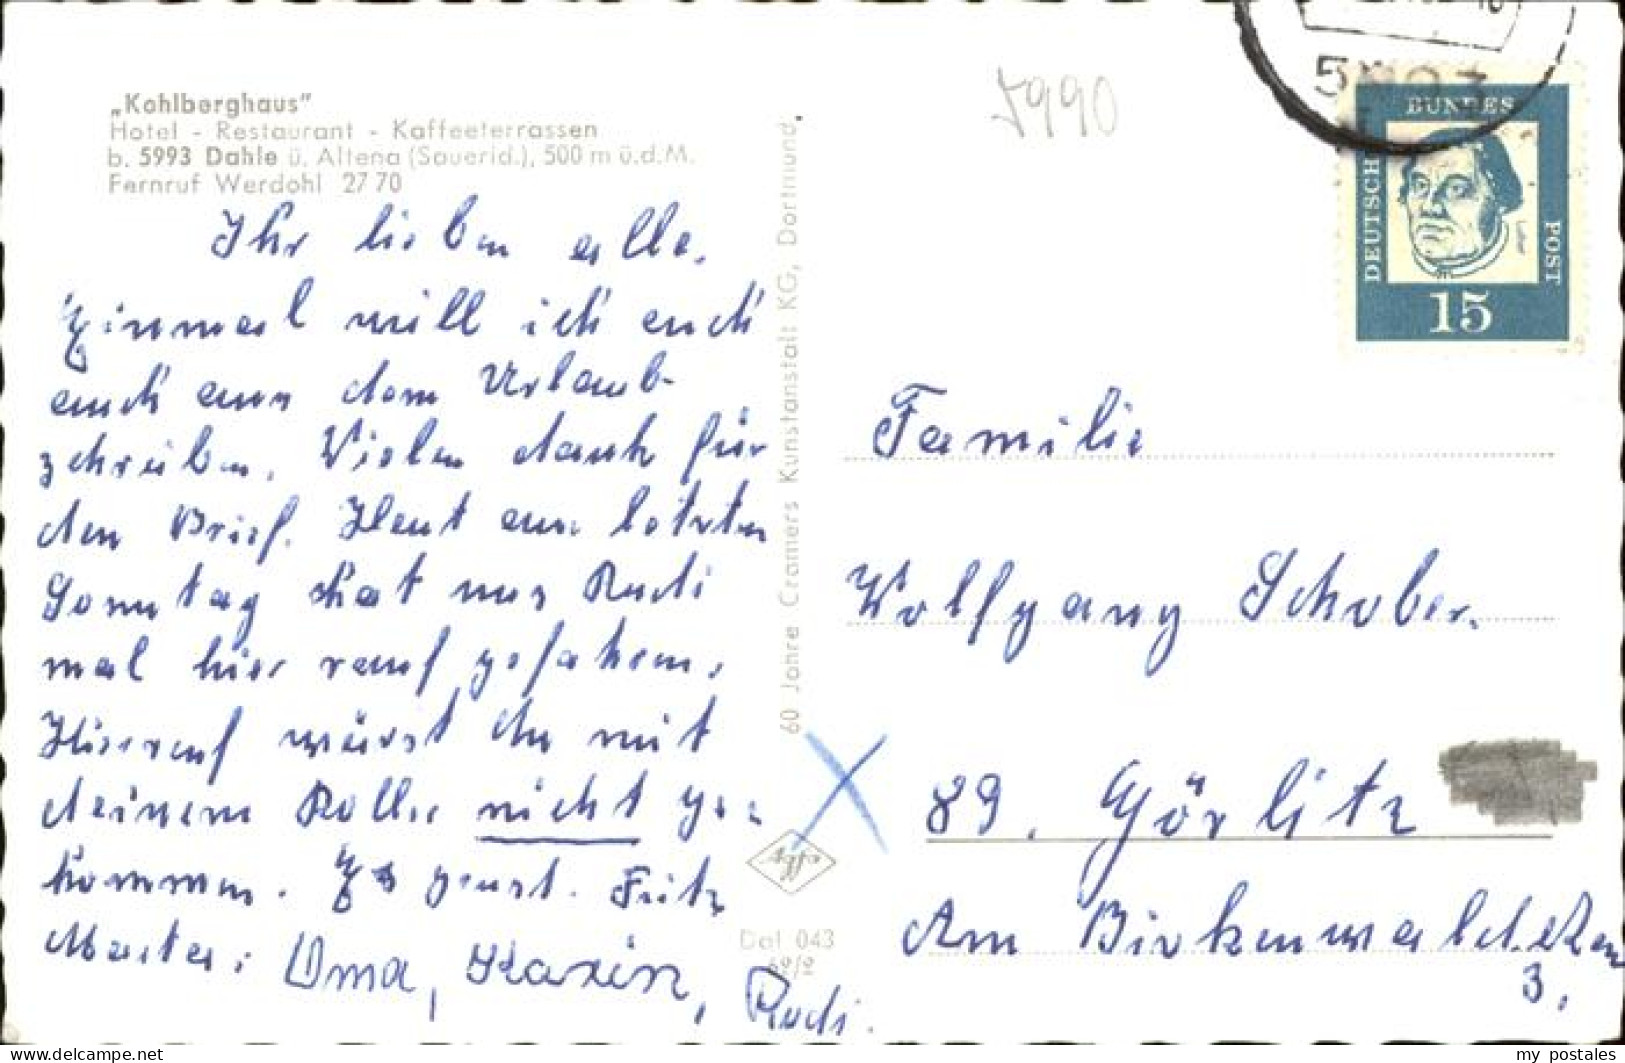 „Kohlberghaus"
Hotel - Restaurant - Kaffeeterrassen
b. 5993 Dahle ü. Altena (Sauerld.), 500 m ü.d.M.
Fernruf Werdohl 27 70
Ihr lieben alle.
Einmal will ich euch
auch aus dem Urlaub
schreiben. Vielen dank für
den Brief. Heut am letzten
Sonntag hat uns Rudi
mal hier rauf gefahren.
Hierrauf wärst du mit
deinem Roller nicht ge=
kommen. Es grüst. Fritz
Martha. Oma, Karin, Rudi.
60 Jahre Cramers Kunstanstalt KG, Dortmund
Dal 043
5990
DEUTSCHE
BUNDES
POST
Luther
15
Familie
Wolfgang Schober.
89. Görlitz
Am Birkenwäldchen
3.
my postales